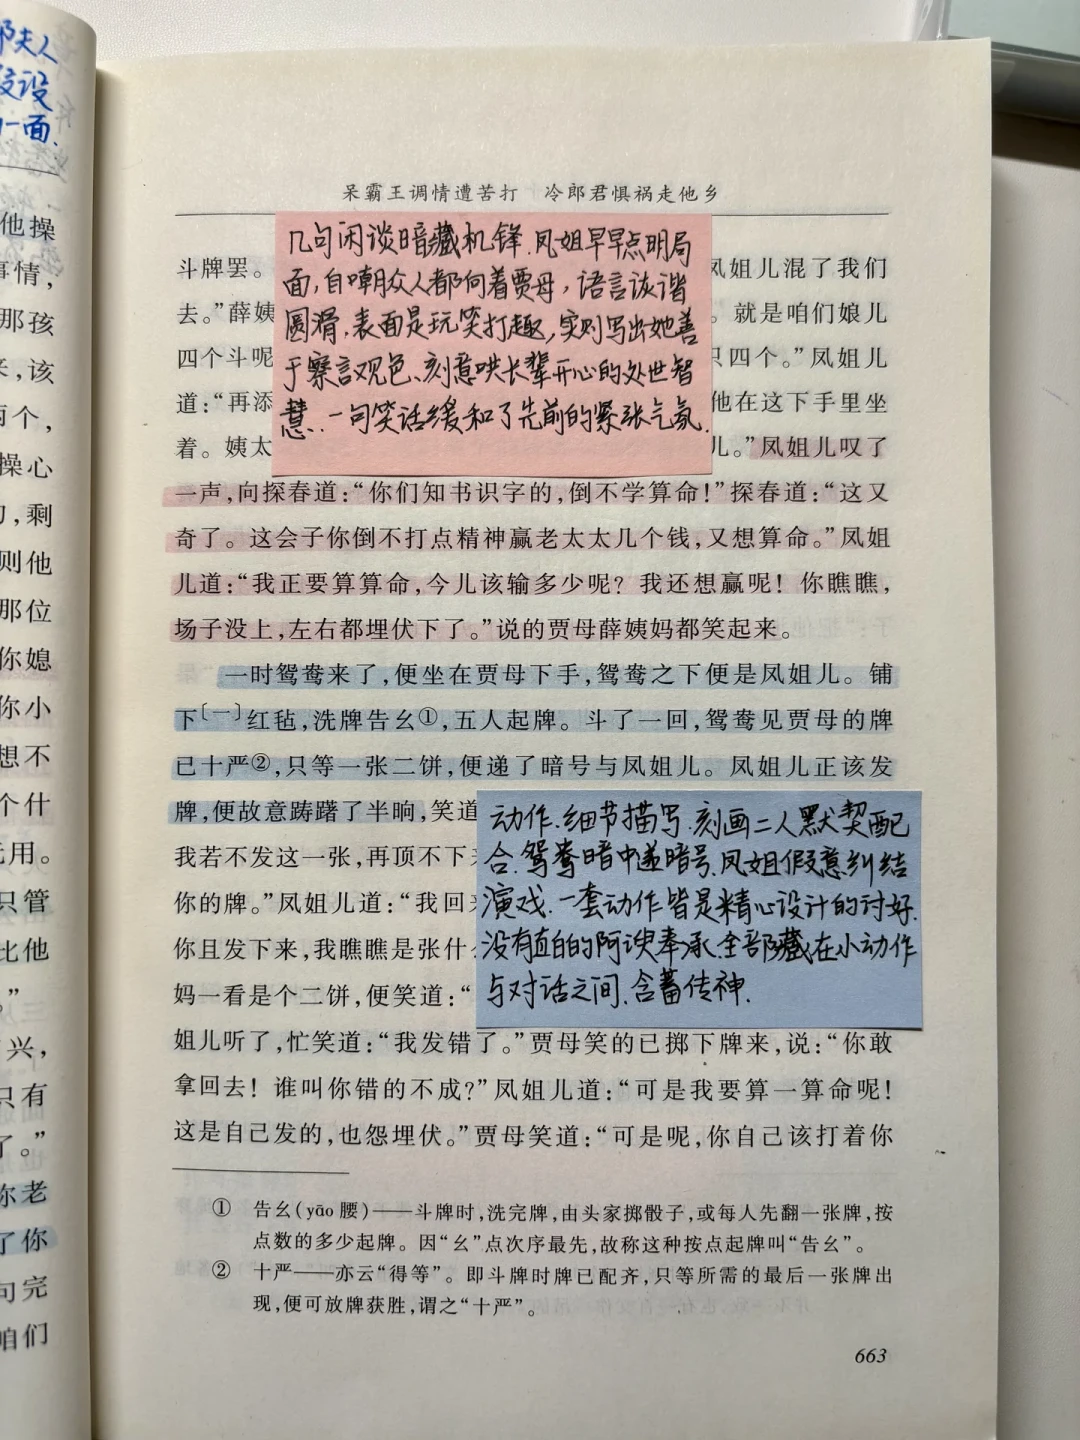 那夫人
设
一面.
他操
事情，
那孩
来，该
两个，
操心
，剩
则他
那位
你媳
你小
想不
个什
无用。
只管
比他
。”
兴，
只有
了。”
你老
了你
句完
咱们
呆霸王调情遭苦打　冷郎君惧祸走他乡
几句闲谈暗藏机锋.凤姐早早点明局
面，自嘲众人都向着贾母，语言诙谐
圆滑.表面是玩笑打趣，实则写出她善
于察言观色、刻意哄长辈开心的处世智
慧.一句笑话缓和了先前的紧张气氛.
斗牌罢。 凤姐儿混了我们
去。”薛姨 。就是咱们娘儿
四个斗呢 只四个。”凤姐儿
道：“再添 他在这下手里坐
着。姨太 儿。”凤姐儿叹了
一声，向探春道：“你们知书识字的，倒不学算命！”探春道：“这又
奇了。这会子你倒不打点精神赢老太太几个钱，又想算命。”凤姐
儿道：“我正要算算命，今儿该输多少呢？我还想赢呢！你瞧瞧，
场子没上，左右都埋伏下了。”说的贾母薛姨妈都笑起来。
一时鸳鸯来了，便坐在贾母下手，鸳鸯之下便是凤姐儿。铺
下〔一〕红毡，洗牌告幺①，五人起牌。斗了一回，鸳鸯见贾母的牌
已十严②，只等一张二饼，便递了暗号与凤姐儿。凤姐儿正该发
牌，便故意踌躇了半晌，笑道
我若不发这一张，再顶不下
你的牌。”凤姐儿道：“我回来
你且发下来，我瞧瞧是张什
妈一看是个二饼，便笑道：“
动作.细节描写.刻画二人默契配
合.鸳鸯暗中递暗号.凤姐假意纠结
演戏.一套动作皆是精心设计的讨好.
没有直白的阿谀奉承.全部藏在小动作
与对话之间.含蓄传神.
姐儿听了，忙笑道：“我发错了。”贾母笑的已掷下牌来，说：“你敢
拿回去！谁叫你错的不成？”凤姐儿道：“可是我要算一算命呢！
这是自己发的，也怨埋伏。”贾母笑道：“可是呢，你自己该打着你
① 告幺（yāo 腰）——斗牌时，洗完牌，由头家掷骰子，或每人先翻一张牌，按
点数的多少起牌。因“幺”点次序最先，故称这种按点起牌叫“告幺”。
② 十严——亦云“得等”。即斗牌时牌已配齐，只等所需的最后一张牌出
现，便可放牌获胜，谓之“十严”。
663